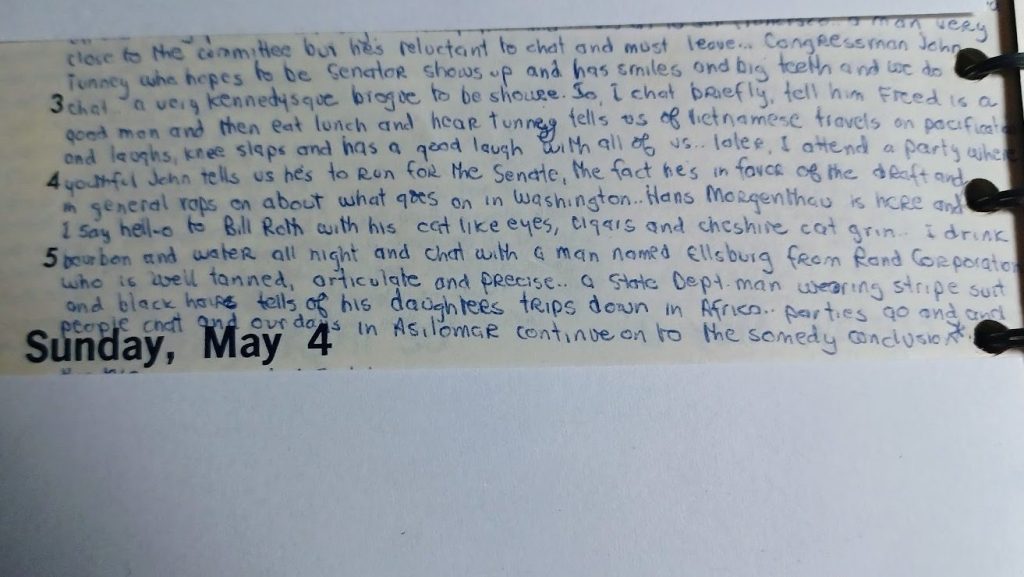 man very
close to the committee but he's reluctant to chat and must leave... Congressman John
Tunney who hopes to be Senator shows up and has smiles and big teeth and we do
3 chat.. a very kennedysque brogue to be shouse. So, i chat briefly, tell him Freed is a
good man and then eat lunch and hear tunney tells us of vietnamese travels on
and laughs, knee slaps and has a good laugh with all of us.. later, I attend a party where
4 youthful John tells us he's to run for the Senate, the fact he's in favor of the draft and
in general raps on about what goes on in Washington.. Hans Morgenthau is here and
I say hell-o to Bill Roth with his cat like eyes, cigars and cheshire cat grin.. I drink
5 bourbon and water all night and chat with a man named Ellsburg from Rand Corporation
who is well tanned, articulate and precise.. a State Dept. man wearing stripe suit
and black hairs tells of his daughters trips down in Africa.. parties go and and
people chat and our days in Asilomar continue on to the somedy conclusion*.
Sunday, May 4